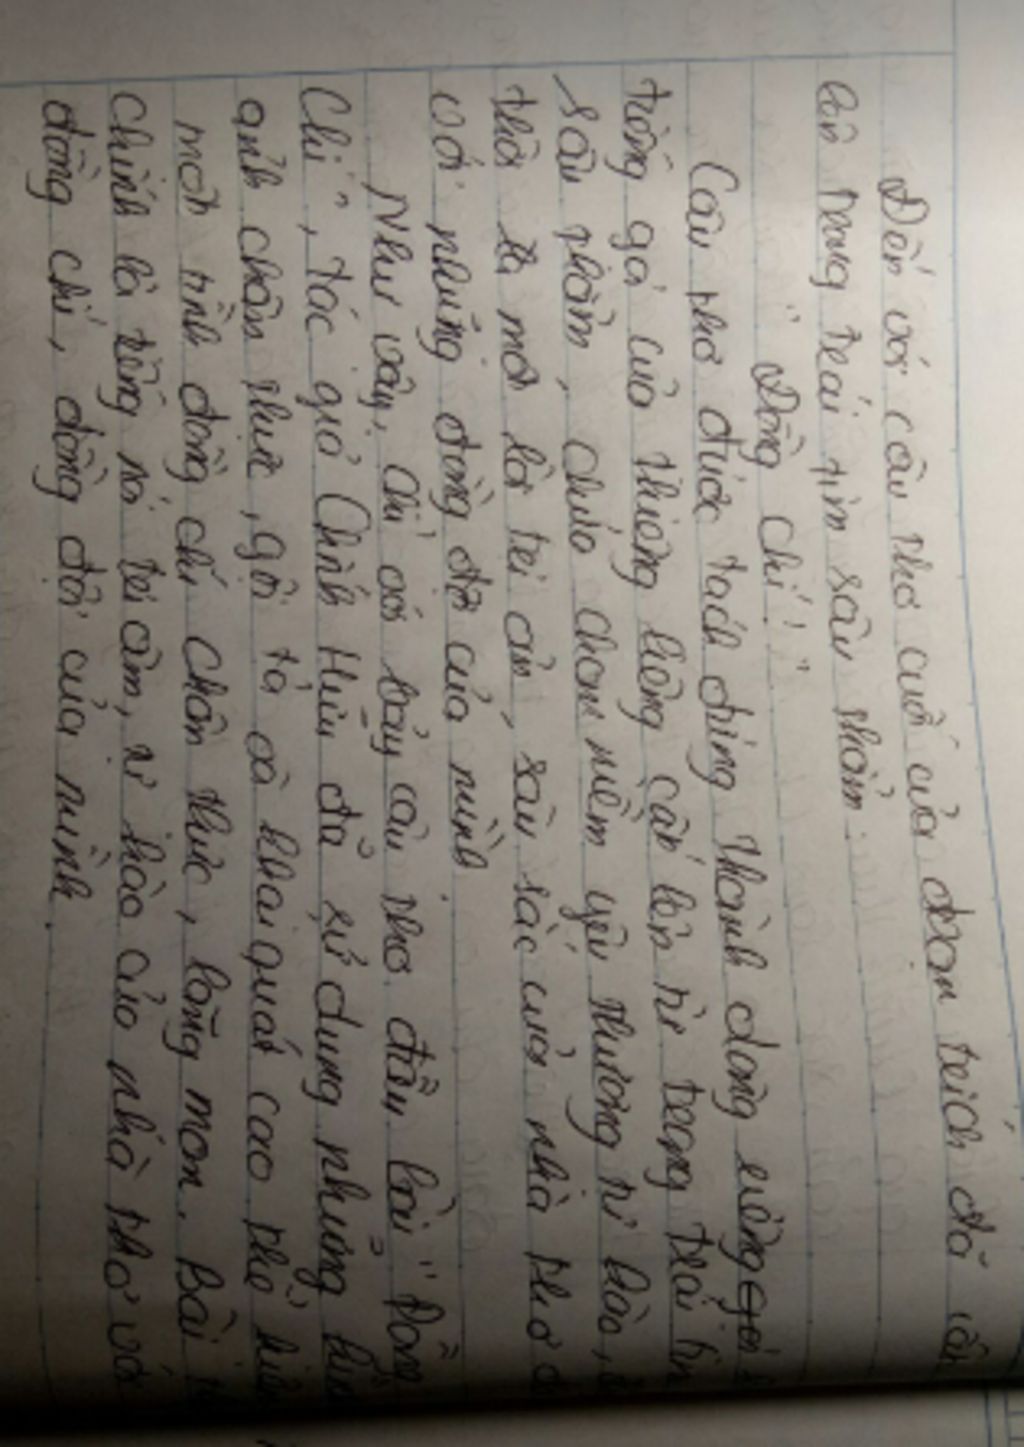 Đối với câu thơ cuối của đoạn trích đã
lên trong trái tim sâu thẳm:
"Đồng chí!"
Câu thơ được tách đứng thành dòng riêng
tiếng gọi của thiêng liêng cất lên từ trong trái tim
sâu thẳm, chứa chan niềm yêu thương tự hào,
thời là một lời tri ân, sâu sắc của nhà thơ
với những đồng đội của mình
Như vậy, chỉ với bảy câu thơ đầu bài "Đồng
Chí", tác giả Chính Hữu đã sử dụng những hình
ảnh chân thực, gợi tả và khái quát cao thể hiện
một tình đồng chí chân thực, lãng mạn. Bài
Chính là tiếng nói tri ân, tự hào của nhà thơ với
đồng chí, đồng đội của mình.